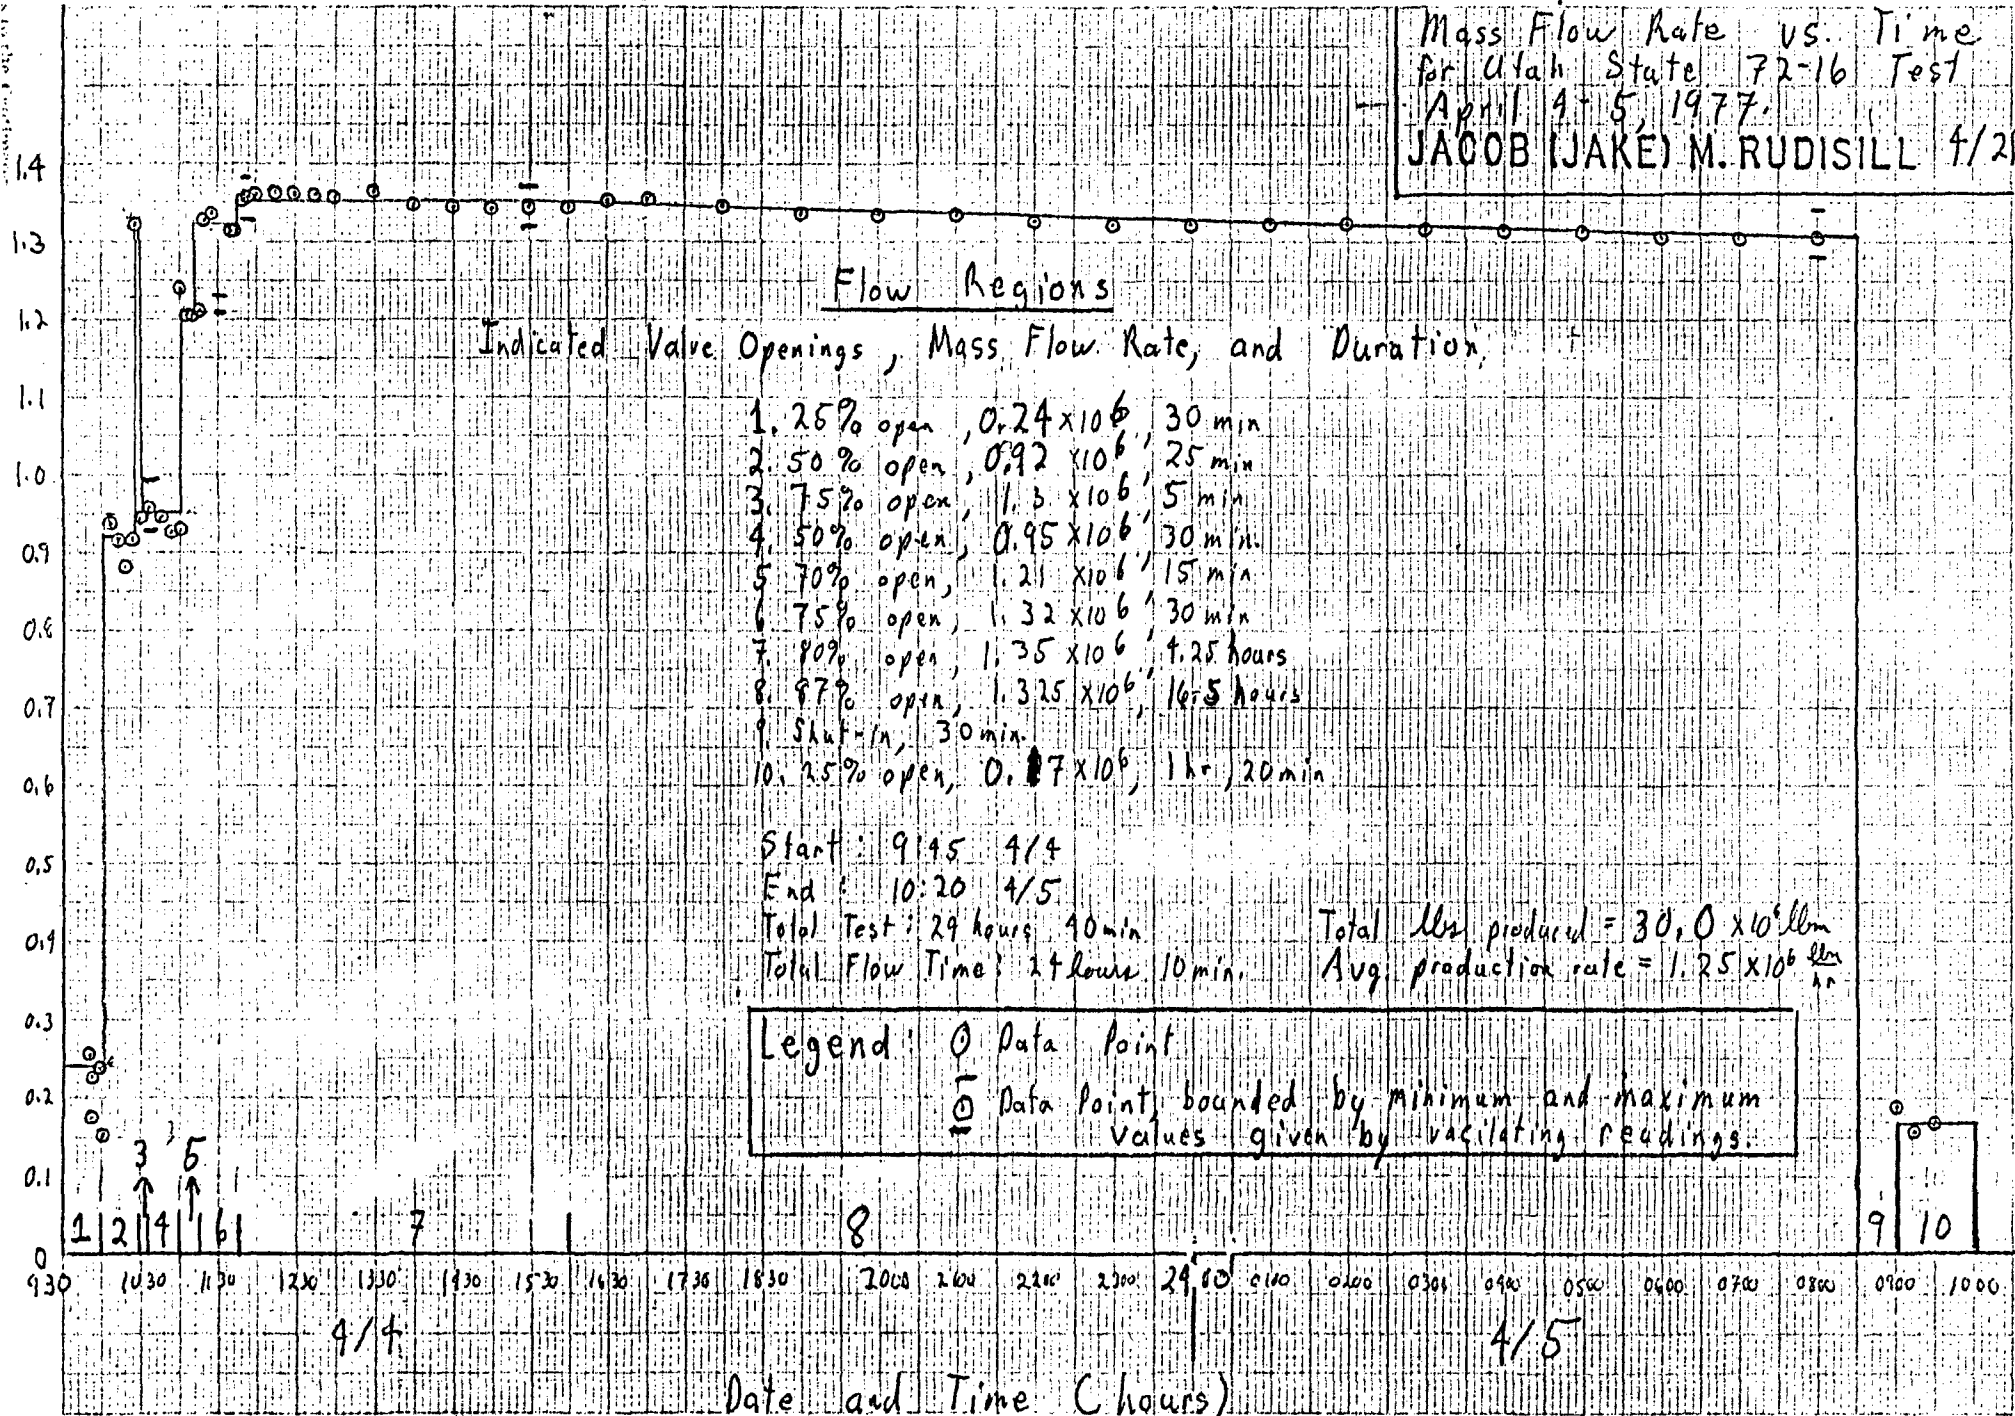 Mass Flow Rate vs. Time
for Utah State 72-16 Test
April 4-5, 1977.
JACOB (JAKE) M. RUDISILL 4/21
1.4
1.3
1.2
1.1
1.0
0.9
0.8
0.7
0.6
0.5
0.4
0.3
0.2
0.1
0
Flow Regions
Indicated Valve Openings, Mass Flow Rate, and Duration
1. 25% open, 0.24 x10^6, 30 min
2. 50% open, 0.92 x10^6, 25 min
3. 75% open, 1.3 x10^6, 5 min
4. 50% open, 0.95 x10^6, 30 min.
5. 70% open, 1.21 x10^6, 15 min
6. 75% open, 1.32 x10^6, 30 min
7. 80% open, 1.35 x10^6, 4.25 hours
8. 87% open, 1.325 x10^6, 16.5 hours
9. Shut-in, 30 min.
10. 25% open, 0.17 x10^6, 1 hr, 20 min
Start: 9:45 4/4
End: 10:20 4/5
Total Test: 24 hours 40 min
Total Flow Time: 24 hours 10 min.
Total lbs produced = 30.0 x10^6 lbm
Avg. production rate = 1.25 x10^6 lbm/hr
Legend: Data Point
Data Point, bounded by minimum and maximum
values given by vacilating readings.
3 5
1 2 4 6 7 8 9 10
930 1030 1130 1230 1330 1430 1530 1630 1730 1830 2000 2100 2200 2300 2400 0100 0200 0300 0400 0500 0600 0700 0800 0900 1000
4/4 4/5
Date and Time (hours)